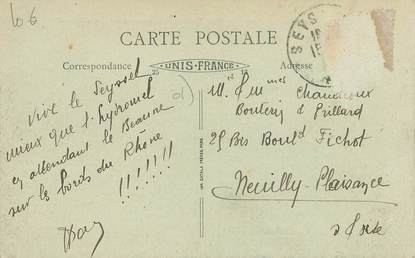 10 €
CARTE POSTALE
Correspondance
UNIS-FRANCE
Adresse
SEYS
Vive le Seyssel
mieux que l'hydromel
en attendant le Beaune
sur les bords du Rhône
!!!!!!!
M. &
Bouterin &
25 Bis Boul<sup>d</sup>
Neuilly-Plaisance
S. Oise